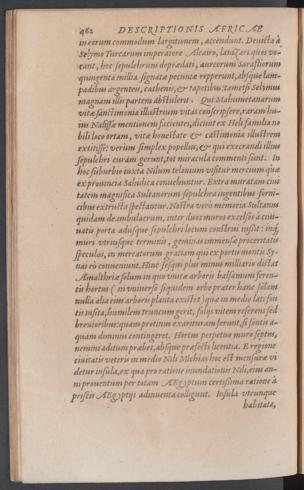 462 DESCRIPTIONIS AFRICAE
in eorum commodum largitionem, accendunt. Deuicto à
Selymo Turcarum imperatore Alcairo, Ianizari quos vo-
cant, hoc sepulchrum deprædati, aureorum Saraffiorum
quingenta millia signatæ pecuniæ repperunt, absque lam-
padibus argenteis, cathenis, & tapetibus: tametsi Selymus
magnam illis partem abstulerit. Qui Mahumetanorum
vitæ sanctimonia illustrium vitas conscripsere, raram hu-
ius Nafissæ mentionem facientes, dicunt ex Hely familia no
bili loco ortam, vitæ honestate & castimonia illustrem
extitisse: verùm simplex popellus, & qui execrandi illius
sepulchri curam gerunt, tot miracula commenti sint. In
hoc suburbio iuxta Nilum telonium visitur mercium quæ
ex prouincia Sahidica conuehuntur. Extra muratam ciui
tatem magnifica Sultanorum sepulchra ingentibus forni-
cibus extructa spectantur. Nostra verò memoria Sultanus
quidam deambulacrum, inter duos muros excelsos à ciui-
tatis porta adusque sepulchri locum construi iussit: inq́;
muris vtriusque terminis, geminas immensæ proceritatis
speculas, in mercatorum gratiam qui ex portu montis Sy-
nai eò conueniunt. Hinc sesquiplus minus milliario distat
Amalthria solum in quo vnica arboris balsamum feren-
tis hortus (in vniuerso siquidem orbe præter hanc solam
nulla alia eius arboris planta existit) quæ in medio lati fon
tis insita, humilem truncum gerit, folijs vitem referens sed
breuioribus: quam protinus exarituram ferunt, si fontis a-
quam diminui contingeret. Hortus perpetuo muro septus,
nemini aditum præbet, absque præfecti licentia. E regione
ciuitatis veteris in medio Nili Michias hoc est mensura vi
detur insula, ex qua pro ratione inundationis Nili, eius an-
ni prouentum per totam Ægyptum certissima ratione à
priscis Ægyptijs adinuenta colligunt. Insula vtcunque
habitata,